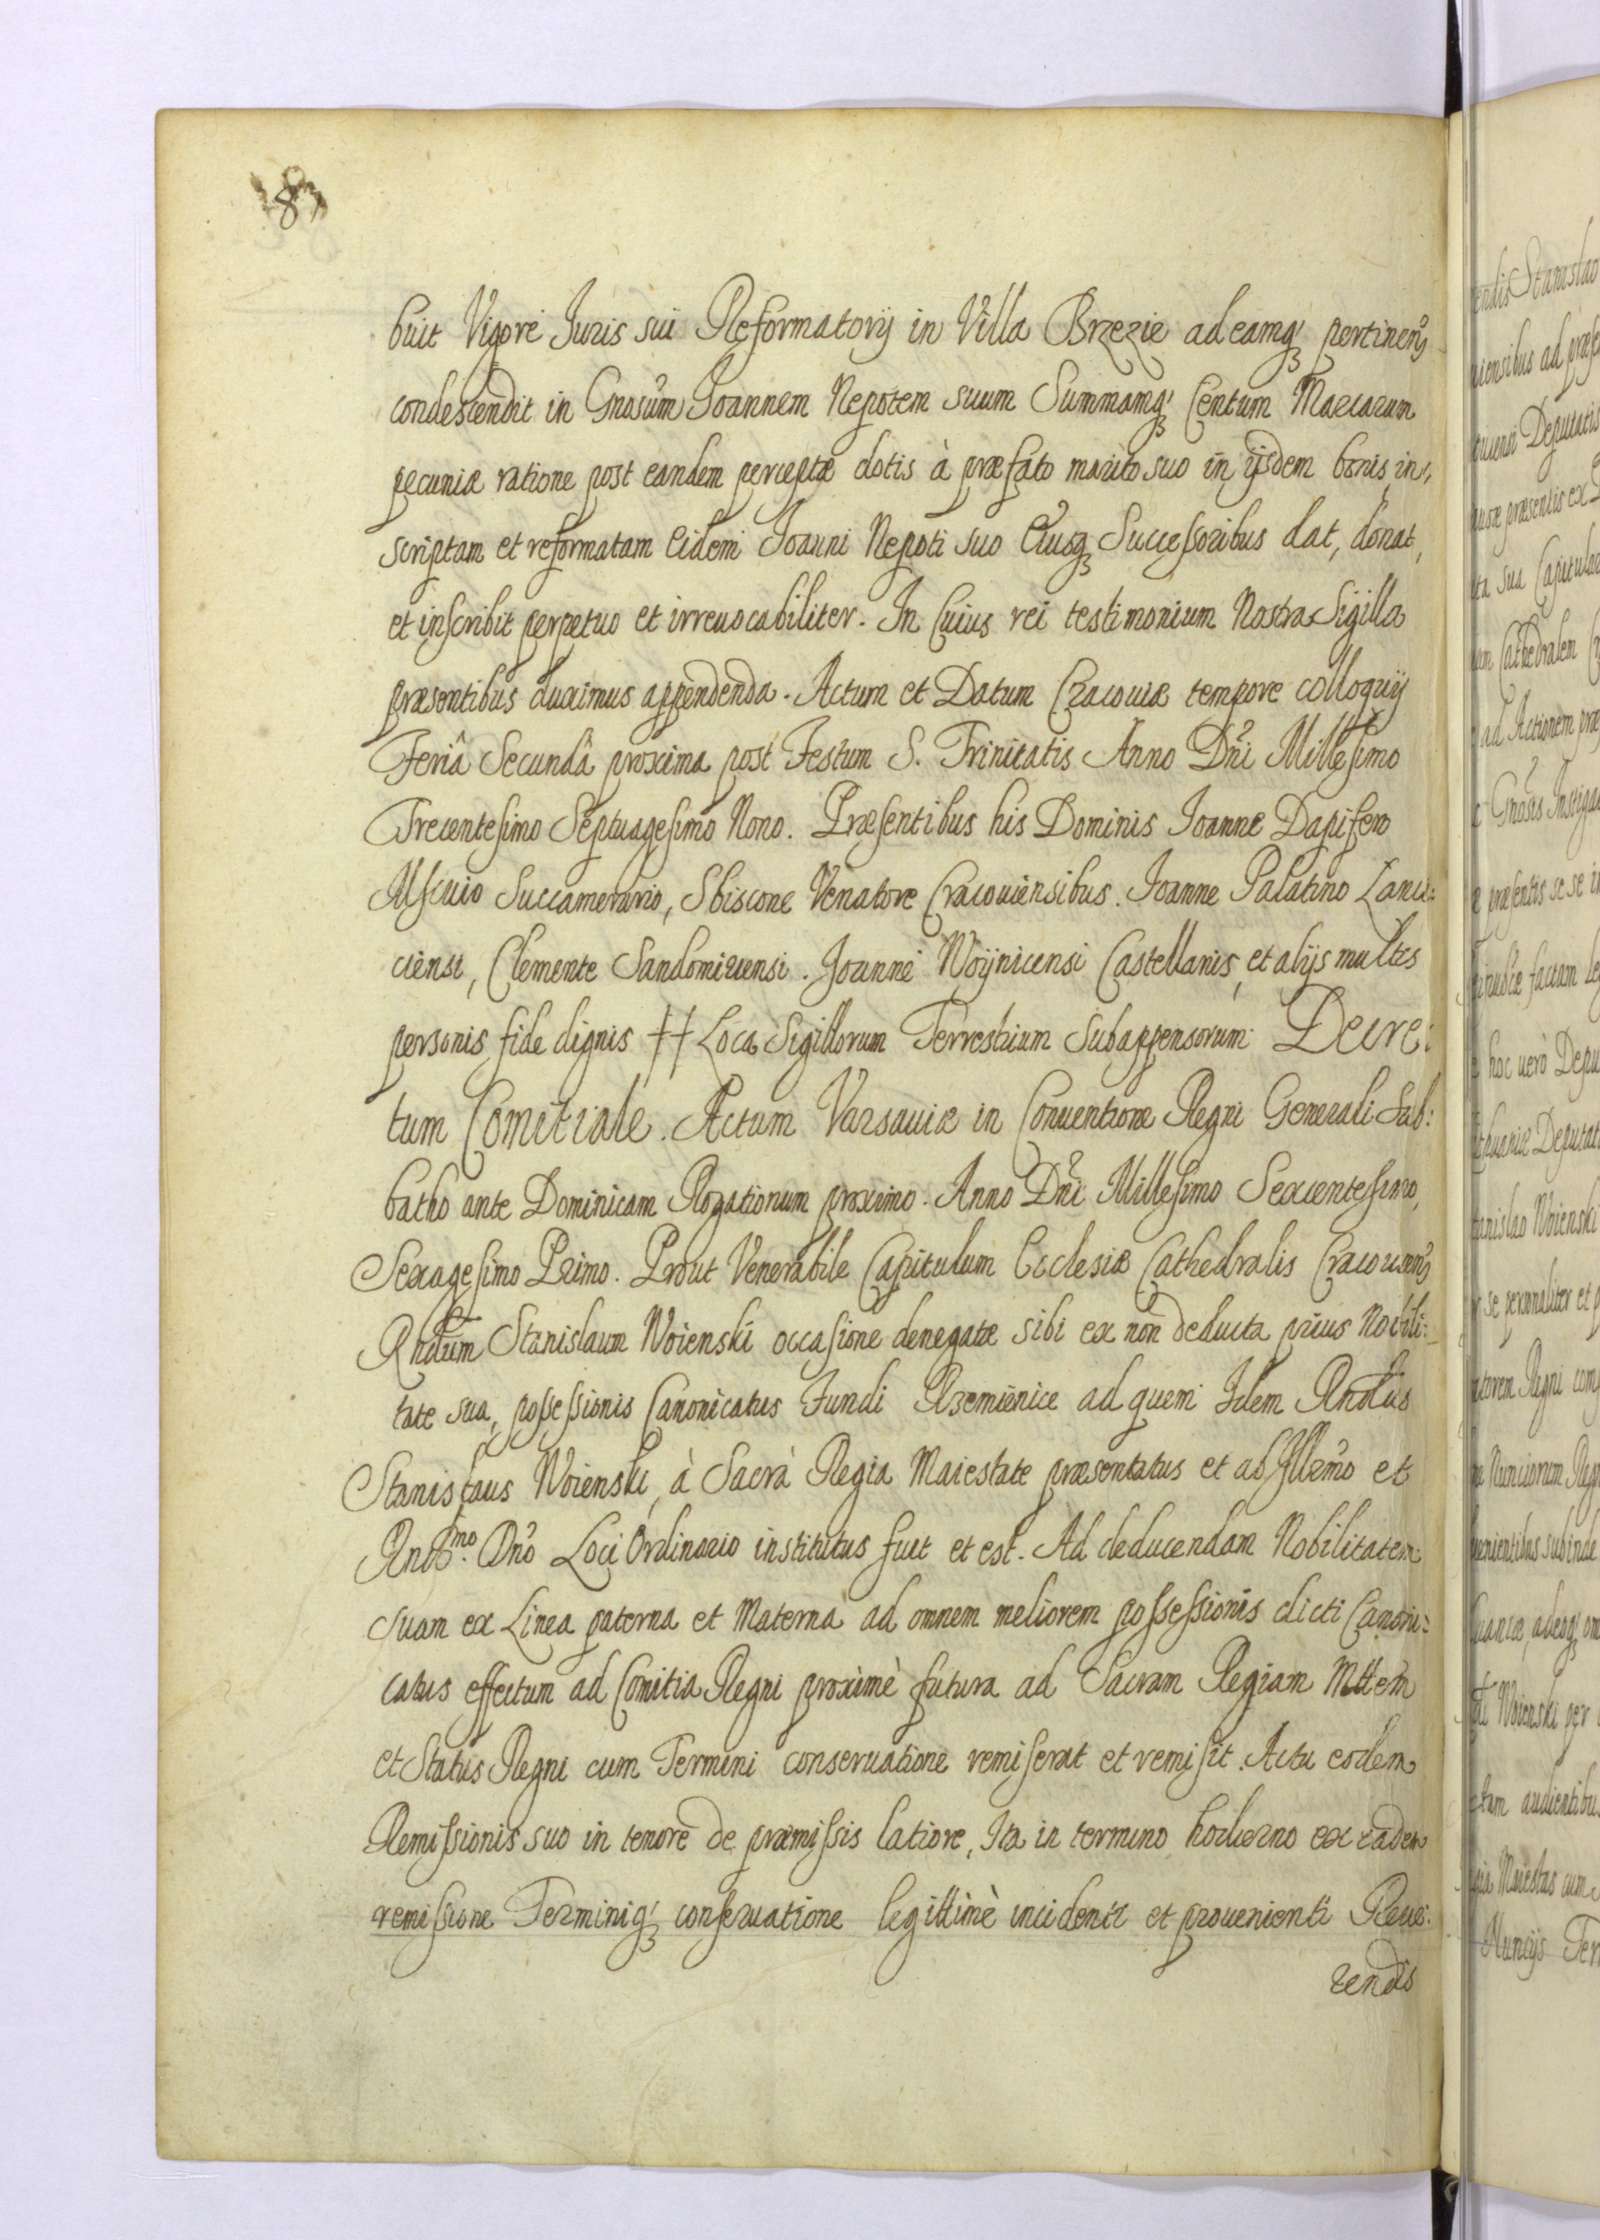 buit Vigore Iuris sui Reformatorÿ in Villa Brzezie ad eamq́ꝫ pertineñ
condescendit in Gnosũm Joannem Nepotem suum Summamq́ꝫ Centum Marcarum
pecuniæ ratione post eandem perceptæ dotis à præfato marito suo in ÿsdem bonis in,
scriptam et reformatam Eidem Joanni Nepoti suo Eiusqꝫ Successoribus dat, donat,
et inscribit perpetuo et irreuocabiliter. In Cuius rei testimonium Nostra Sigilla
præsentibus duximus appendenda. Actum et Datum Cracouiæ tempore colloquÿ
Feriâ Secundâ proxima post Festum S. Trinitatis Anno Dñi Millesimo
Trecentesimo Septuagesimo Nono. Præsentibus his Dominis Joanne Dapifero
Msciuio Succamerario, Sbiscone Venatore Cracouiensibus. Joanne Palatino Lanci:
ciensi, Clemente Sandomiriensi. Joanne Woÿnicensi Castellanis, et alÿs multis
personis fide dignis ++ Loca Sigillorum Terrestrium Subappensorum. Decre:
tum Comitiale. Actum Varsauiæ in Conuentione Regni Generali Sab:
batho ante Dominicam Rogationum proximo. Anno Dñi Millesimo Sexcentesimo,
Sexagesimo Primo. Prout Venerabile Capitulum Ecclesiæ Cathedralis Cracouieñ
Rndum Stanislaum Woienski occasione denegatæ sibi ex non deducta prius Nobili:
tate sua, possessionis Canonicatus Fundi Przemienice ad quem Idem Rndus
Stanislaus Woienski, à Sacrà Regia Maiestate præsentatus et ab Illmo et
Rndmo. Dño Loci Ordinario institutus fuit et est. Ad deducendam Nobilitatem
suam ex Linea paterna et Materna ad omnem meliorem possessionis dicti Canoni:
catus effectum ad Comitia Regni proximè futura ad Sacram Regiam Mttem
et Status Regni cum Termini conseruatione remiserat et remisit. Actu eodem
Remissionis suo in tenore de præmissis latiore, Ita in termino hodierno ex eadem
remissione Terminiq́ꝫ conseruatione legittimè incidenti et prouenienti Reue:
rendis